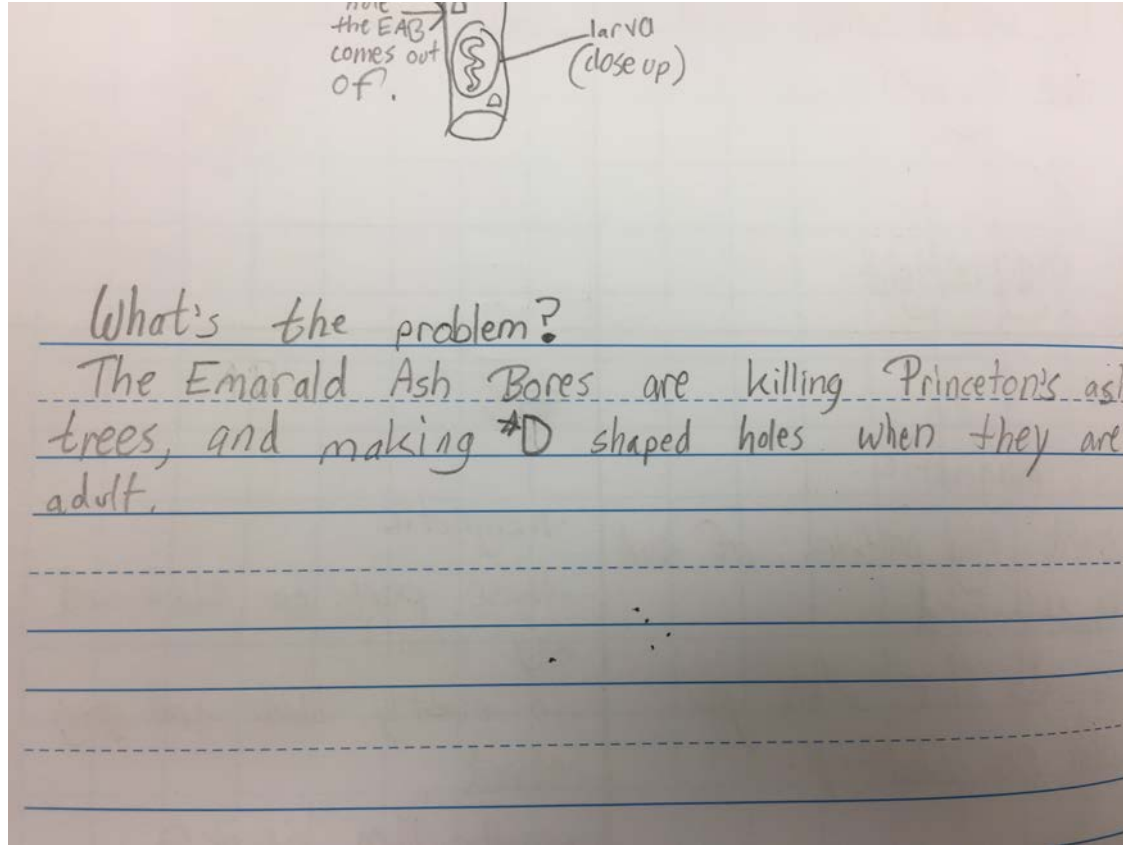 the EAB
comes out
of.
larva
(close up)
What's the problem?
The Emarald Ash Bores are killing Princeton's
trees, and making *D shaped holes when they are
adult.